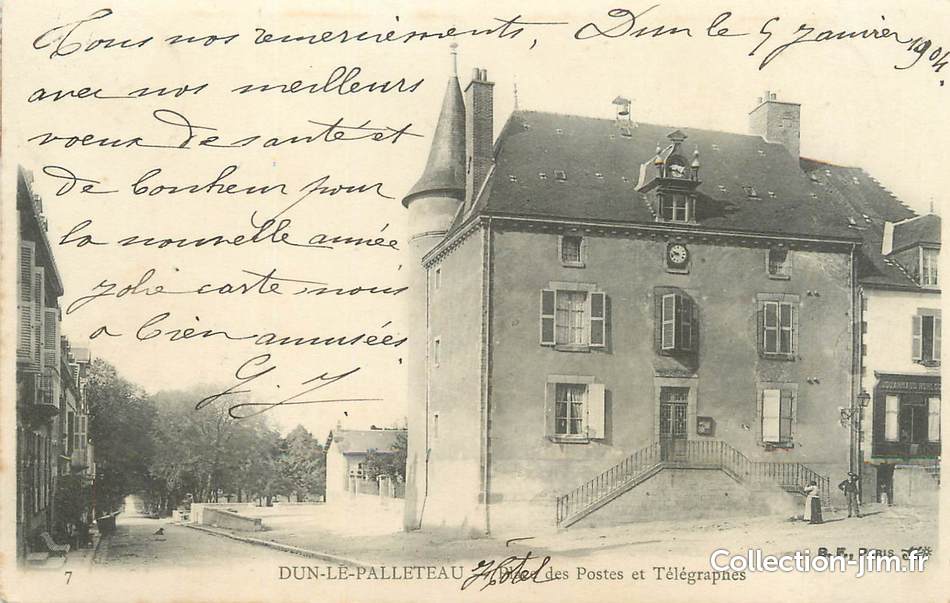 Tous nos remerciements, Dun le 4 Janvier 1904.
avec nos meilleurs
voeux de santé et
de bonheur pour
la nouvelle année
Jolie carte nous
a bien amusées
G. J.
7 DUN-LE-PALLETEAU Hôtel des Postes et Télégraphes
B. F., PARIS
Collection-jfm.fr